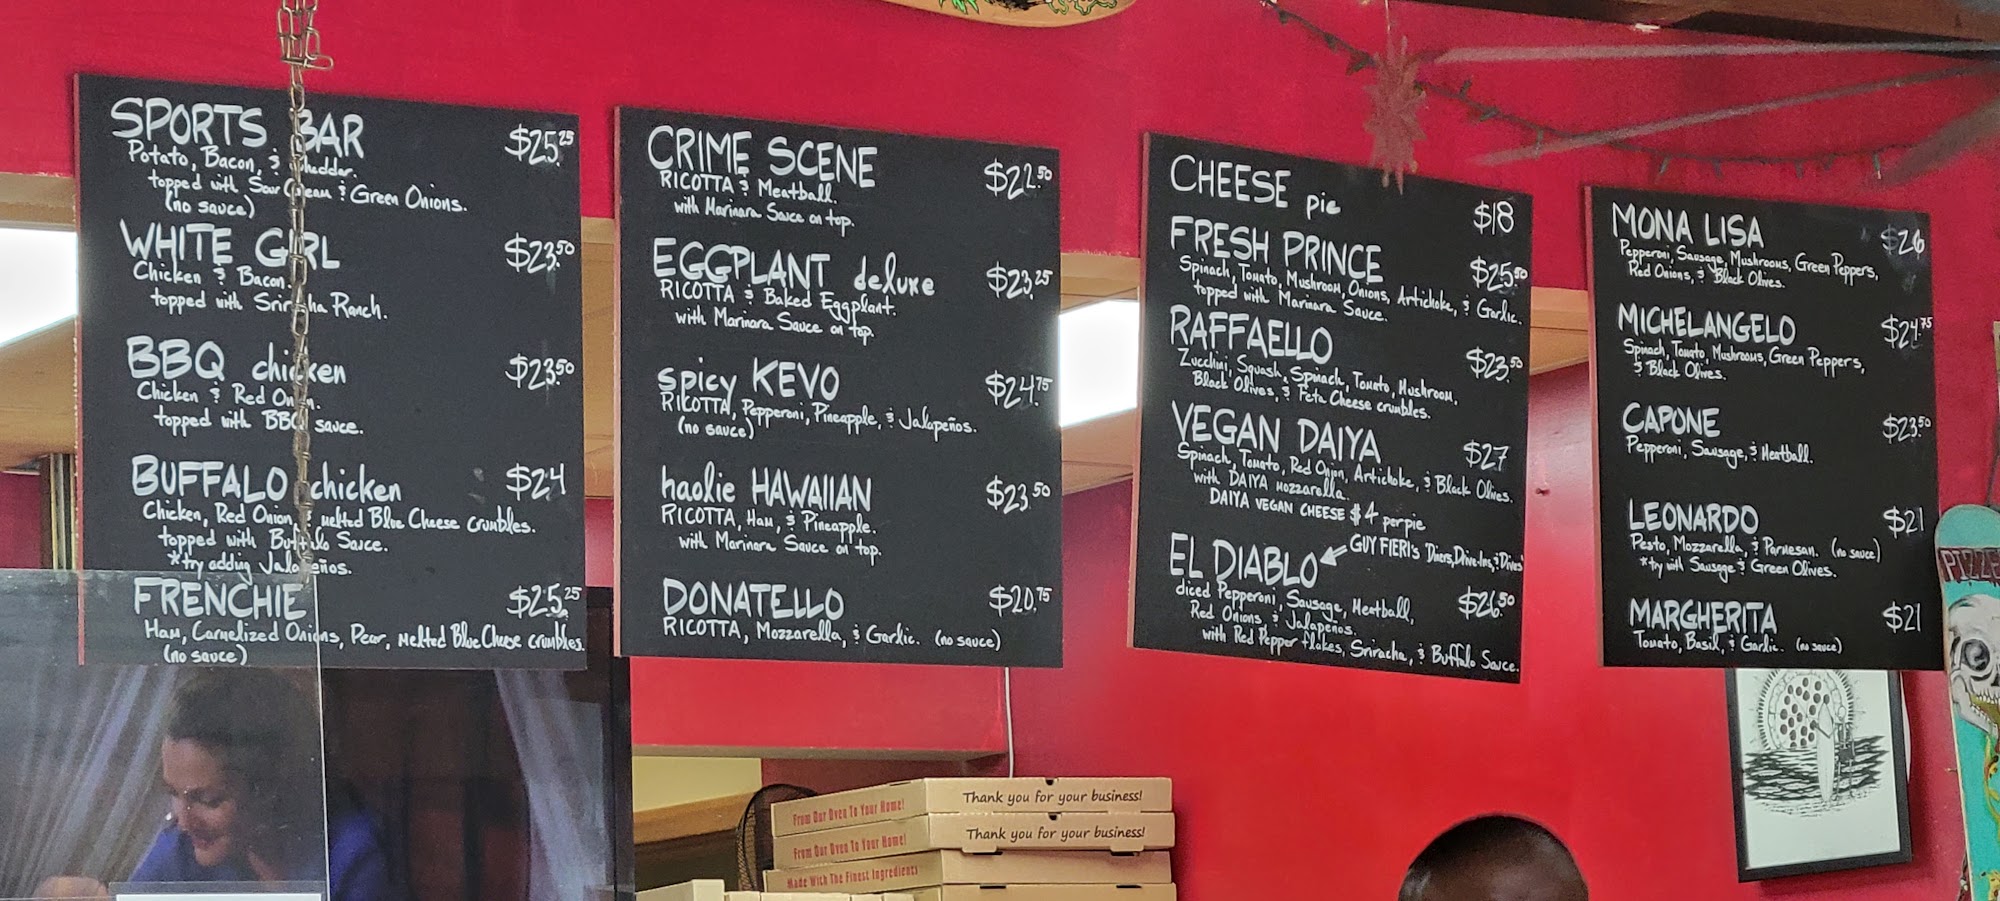 SPORTS BAR $25.25
Potato, Bacon, & Cheddar.
topped with Sour Cream & Green Onions.
(no sauce)
WHITE GIRL $23.50
Chicken & Bacon
topped with Sriracha Ranch.
BBQ chicken $23.50
Chicken & Red Onion.
topped with BBQ sauce.
BUFFALO chicken $24
Chicken, Red Onion, & melted Blue Cheese crumbles.
topped with Buffalo Sauce.
*try adding Jalapeños.
FRENCHIE $25.25
Ham, Carmelized Onions, Pear, melted Blue Cheese crumbles.
(no sauce)
CRIME SCENE $22.50
RICOTTA & Meatball.
with Marinara Sauce on top.
EGGPLANT deluxe $23.25
RICOTTA & Baked Eggplant.
with Marinara Sauce on top.
spicy KEVO $24.75
RICOTTA, Pepperoni, Pineapple, & Jalapeños.
(no sauce)
haolie HAWAIIAN $23.50
RICOTTA, Ham, & Pineapple.
with Marinara Sauce on top.
DONATELLO $20.75
RICOTTA, Mozzarella, & Garlic. (no sauce)
CHEESE pie $18
FRESH PRINCE $25.50
Spinach, Tomato, Mushroom, Onions, Artichoke, & Garlic.
topped with Marinara Sauce.
RAFFAELLO $23.50
Zucchini, Squash, Spinach, Tomato, Mushroom,
Black Olives, & Feta Cheese crumbles.
VEGAN DAIYA $27
Spinach, Tomato, Red Onion, Artichoke, & Black Olives.
with DAIYA mozzarella.
DAIYA VEGAN CHEESE $4 per pie
EL DIABLO GUY FIERI's Diners, Drive-Ins, & Dives $26.50
diced Pepperoni, Sausage, Meatball,
Red Onions & Jalapeños.
with Red Pepper flakes, Sriracha, & Buffalo Sauce.
MONA LISA $26
Pepperoni, Sausage, Mushrooms, Green Peppers,
Red Onions, & Black Olives.
MICHELANGELO $24.75
Spinach, Tomato, Mushrooms, Green Peppers,
& Black Olives.
CAPONE $23.50
Pepperoni, Sausage, & Meatball.
LEONARDO $21
Pesto, Mozzarella, & Parmesan. (no sauce)
*try with Sausage & Green Olives.
MARGHERITA $21
Tomato, Basil, & Garlic. (no sauce)
From Our Oven To Your Home! Thank you for your business!
From Our Oven To Your Home! Thank you for your business!
Made With The Finest Ingredients